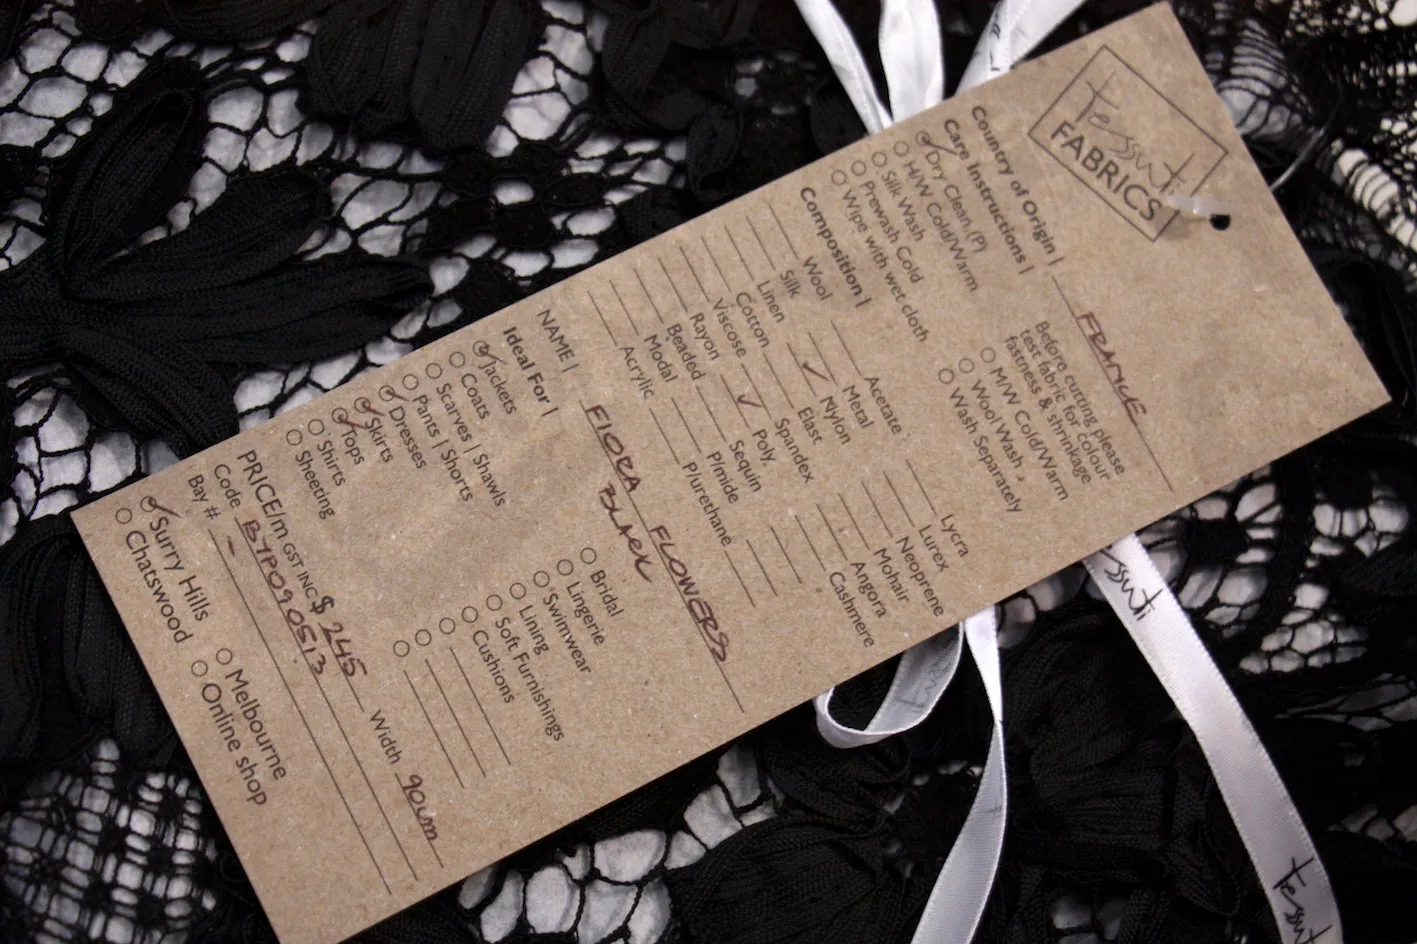 tessuti
FABRICS
Country of Origin | FRANCE
Care Instructions |
Dry Clean (P)
H/W Cold/Warm
Silk Wash
Prewash Cold
Wipe with wet cloth
Before cutting please
test fabric for colour
fastness & shrinkage
M/W Cold/Warm
Wool Wash
Wash Separately
Composition |
Wool
Silk
Linen
Cotton
Viscose
Rayon
Beaded
Modal
Acrylic
Acetate
Metal
✓ Nylon
Elast
Spandex
✓ Poly
Sequin
Pimide
Plurethane
Lycra
Lurex
Neoprene
Mohair
Angora
Cashmere
NAME | FIORA FLOWERS
BLACK
Ideal For |
Jackets
Coats
Scarves | Shawls
Pants | Shorts
Dresses
Skirts
Tops
Shirts
Sheeting
Bridal
Lingerie
Swimwear
Lining
Soft Furnishings
Cushions
PRICE/m GST INC $ 245 Width 90cm
Code BYP090513
Bay # -
Surry Hills
Chatswood
Melbourne
Online shop
tessuti
tessuti